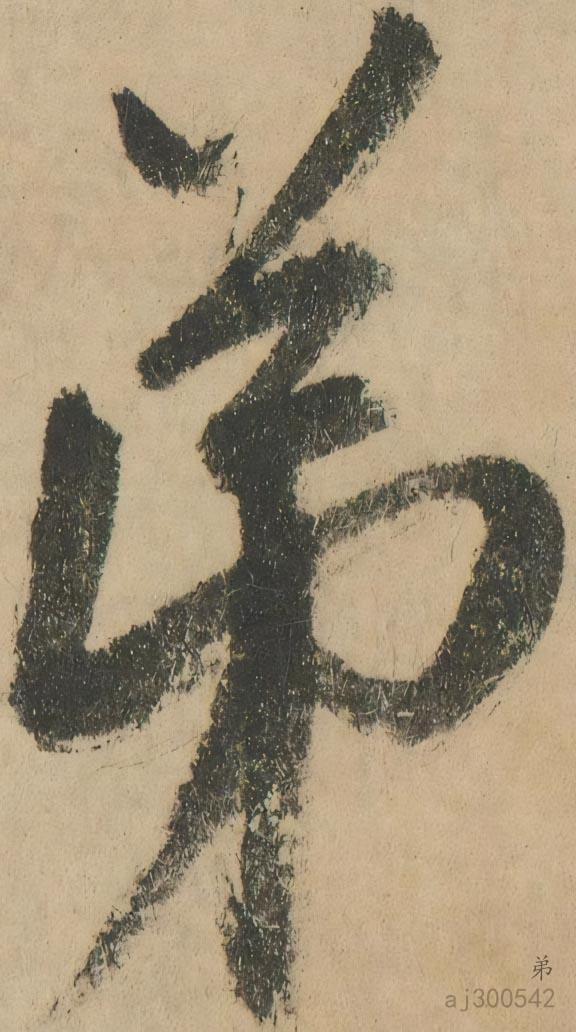 弟
弟
aj300542